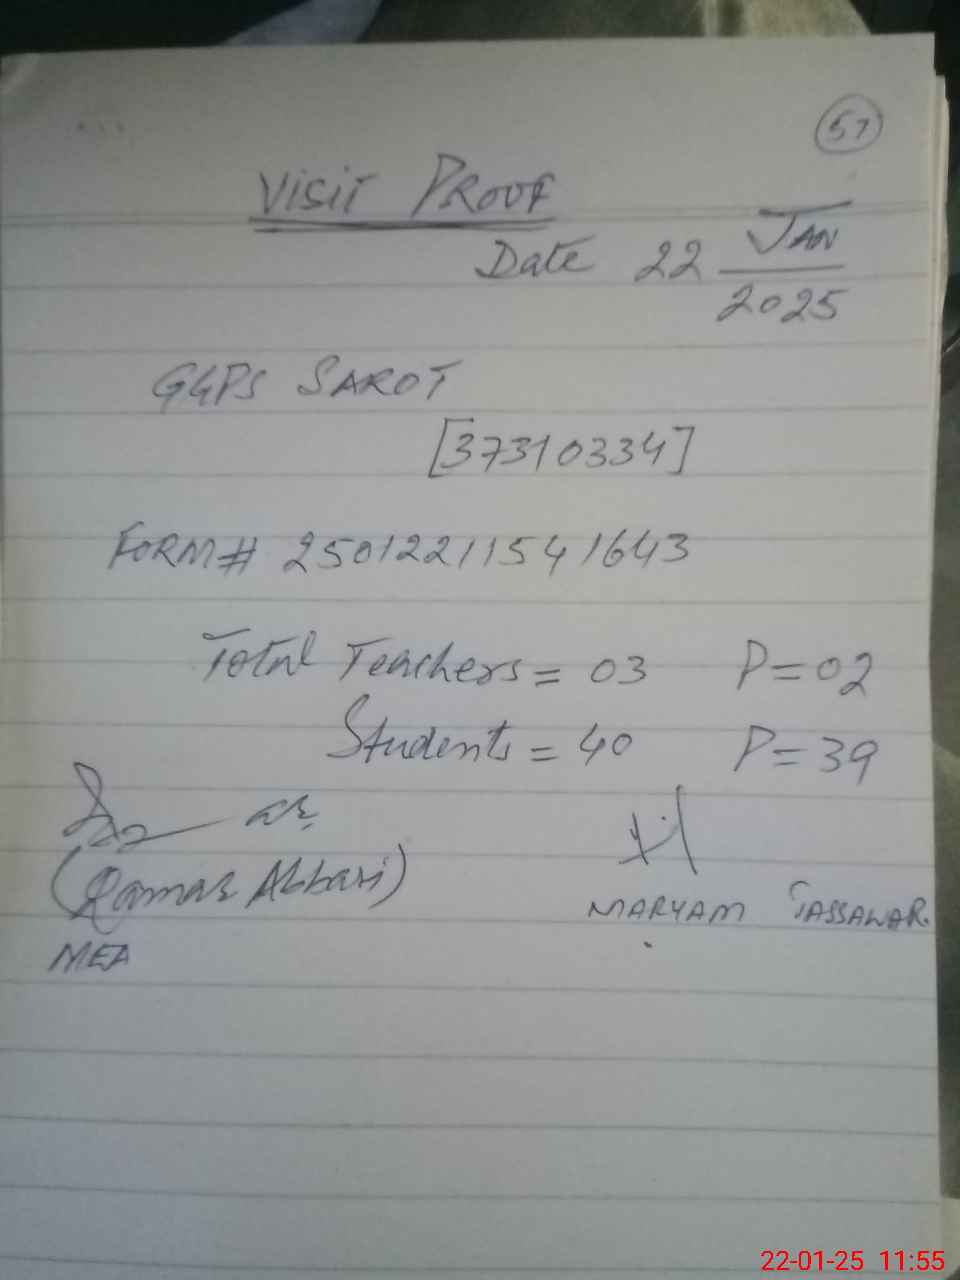 57
Visit Proof
Date 22 Jan
2025
GGPS SAROT
[37310334]
FORM# 25012211541643
Total Teachers = 03 P=02
Students = 40 P=39
(Qamar Abbasi)
MARYAM TASSAWAR.
MEA
22-01-25 11:55